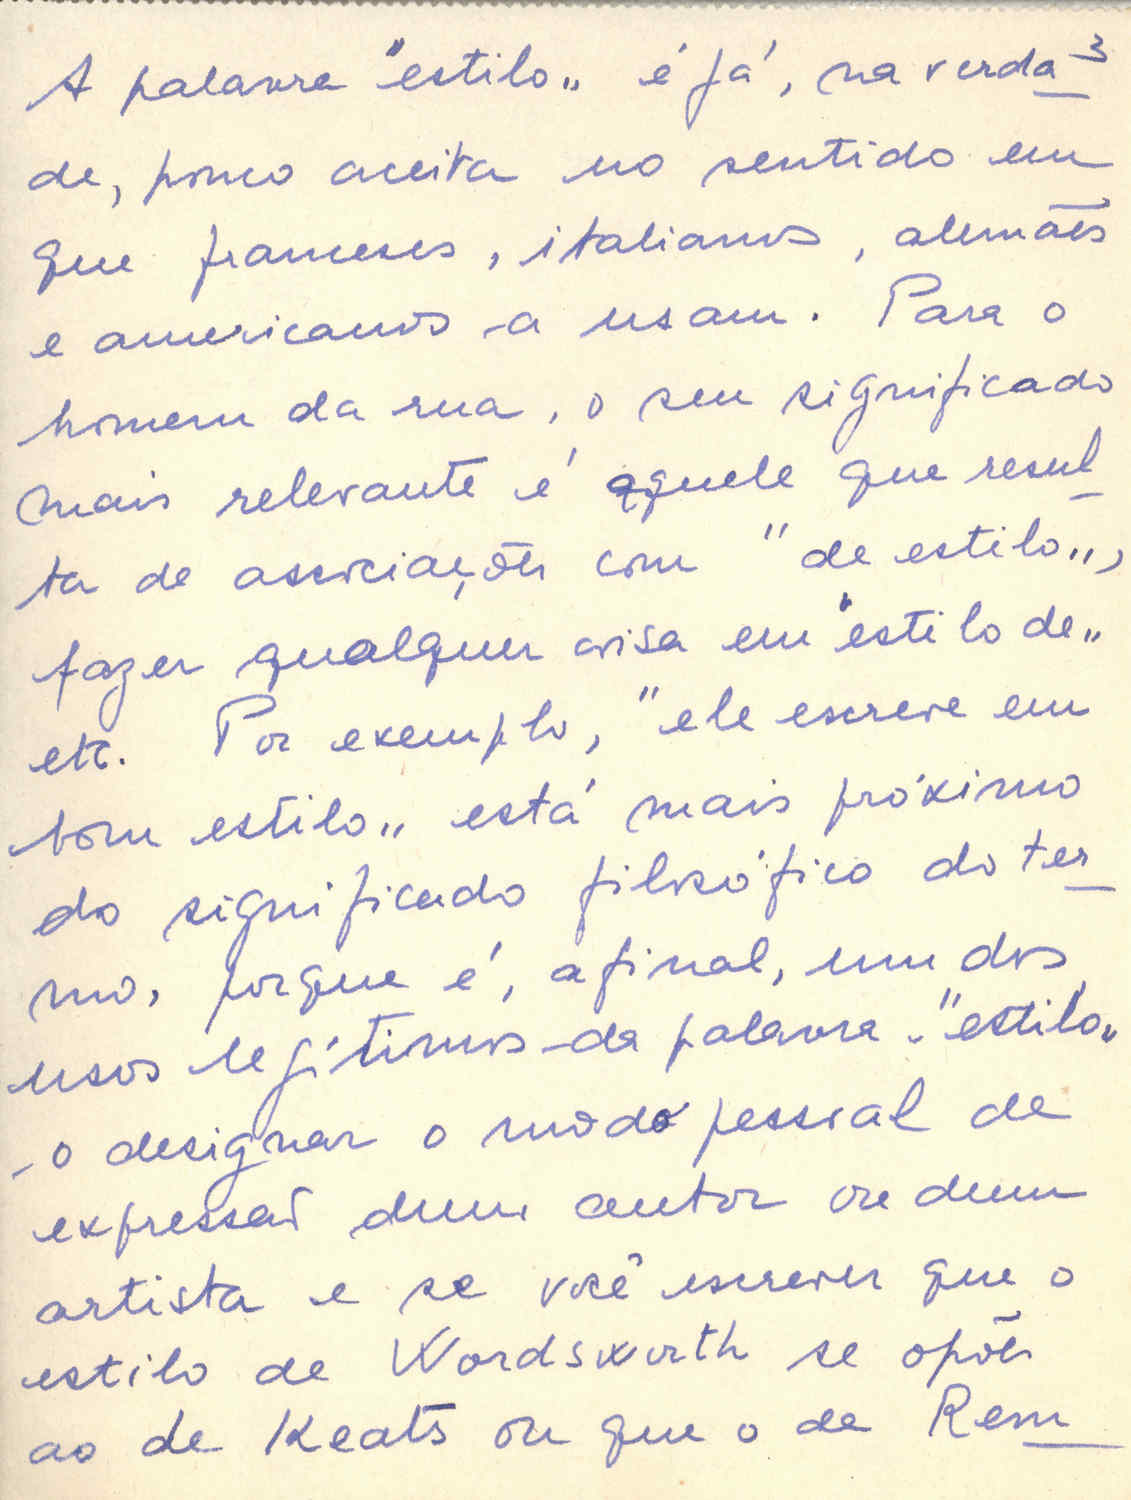 3
A palavra "estilo" é já, na verda
de, pouco aceita no sentido em
que franceses, italianos, alemães
e americanos a usam. Para o
homem da rua, o seu significado
mais relevante é aquele que resul
ta de associações com "de estilo",
fazer qualquer coisa em "estilo de"
etc. Por exemplo, "ele escreve em
bom estilo" está mais próximo
do significado filosófico do ter
mo, porque é, afinal, um dos
usos legítimos da palavra "estilo"
- o designar o modo pessoal de
expressão dum autor ou dum
artista e se você escrever que o
estilo de Wordsworth se opõe
ao de Keats ou que o de Rem